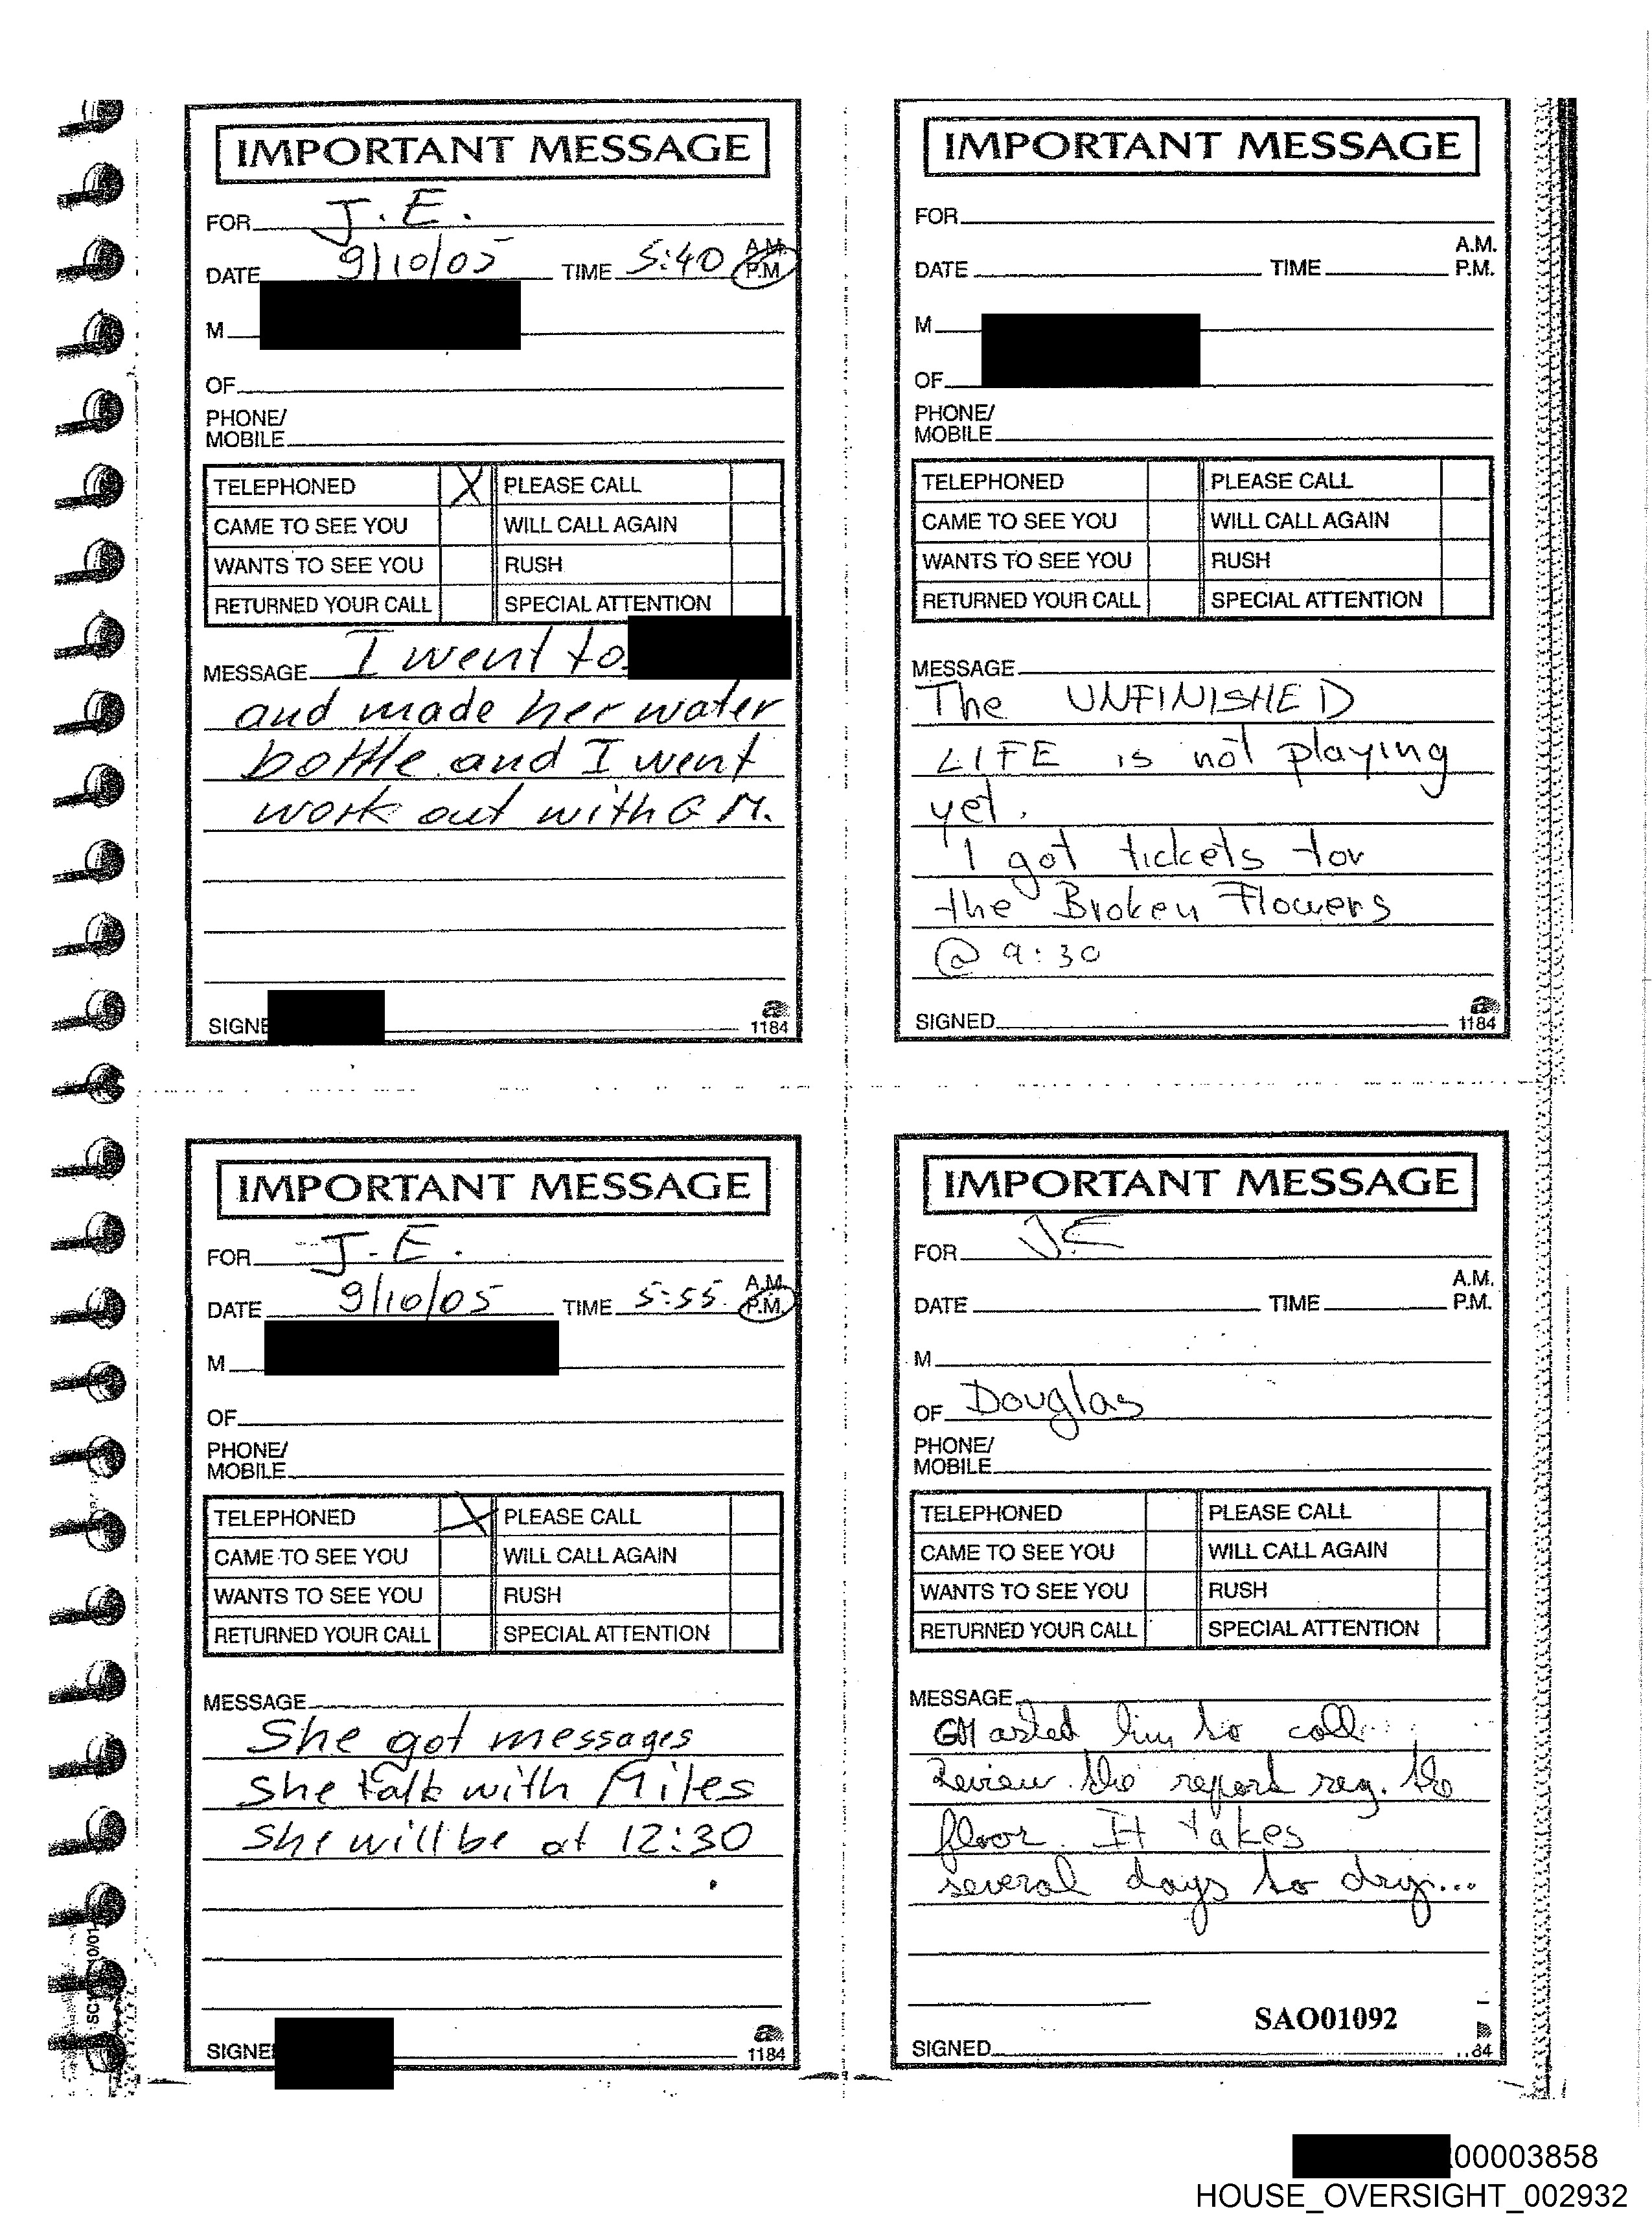 IMPORTANT MESSAGE
FOR J.E.
DATE 9/10/05 TIME 5:40 A.M. P.M.
M
OF
PHONE/
MOBILE
TELEPHONED X PLEASE CALL
CAME TO SEE YOU WILL CALL AGAIN
WANTS TO SEE YOU RUSH
RETURNED YOUR CALL SPECIAL ATTENTION
MESSAGE I went to
and made her water
bottle and I went
work out with G M.
SIGNE
1184
IMPORTANT MESSAGE
FOR
A.M.
DATE TIME P.M.
M
OF
PHONE/
MOBILE
TELEPHONED PLEASE CALL
CAME TO SEE YOU WILL CALL AGAIN
WANTS TO SEE YOU RUSH
RETURNED YOUR CALL SPECIAL ATTENTION
MESSAGE
The UNFINISHED
LIFE is not playing
yet.
I got tickets for
the Broken Flowers
@ 9:30
SIGNED
1184
IMPORTANT MESSAGE
FOR J.E.
DATE 9/10/05 TIME 5:55 A.M. P.M.
M
OF
PHONE/
MOBILE
TELEPHONED X PLEASE CALL
CAME TO SEE YOU WILL CALL AGAIN
WANTS TO SEE YOU RUSH
RETURNED YOUR CALL SPECIAL ATTENTION
MESSAGE
She got messages
she talk with Miles
she will be at 12:30
SIGNE
1184
IMPORTANT MESSAGE
FOR J.E
A.M.
DATE TIME P.M.
M
OF Douglas
PHONE/
MOBILE
TELEPHONED PLEASE CALL
CAME TO SEE YOU WILL CALL AGAIN
WANTS TO SEE YOU RUSH
RETURNED YOUR CALL SPECIAL ATTENTION
MESSAGE
GM asked him to call
Review the report reg. the
floor. It takes
several days to dry...
SAO01092
SIGNED
00003858
HOUSE_OVERSIGHT_002932